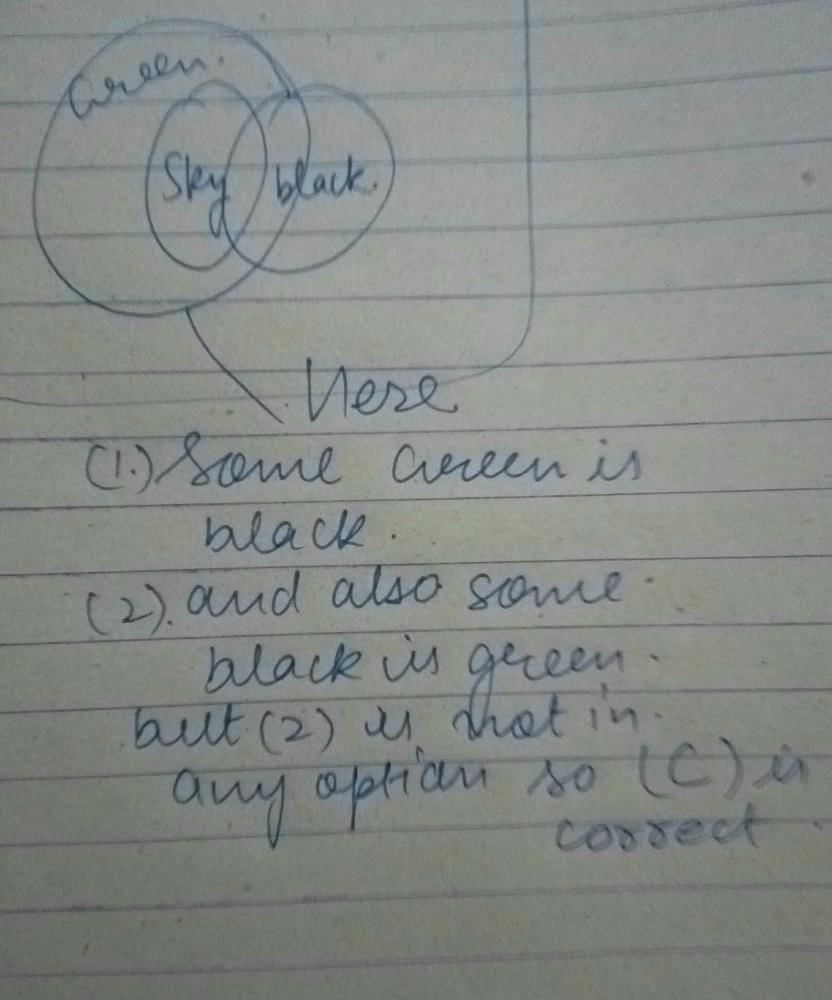 Green.
Sky black.
Here
(1.) Some Green is
black.
(2). and also some
black is green.
but (2) is not in
any option so (C) is
correct.